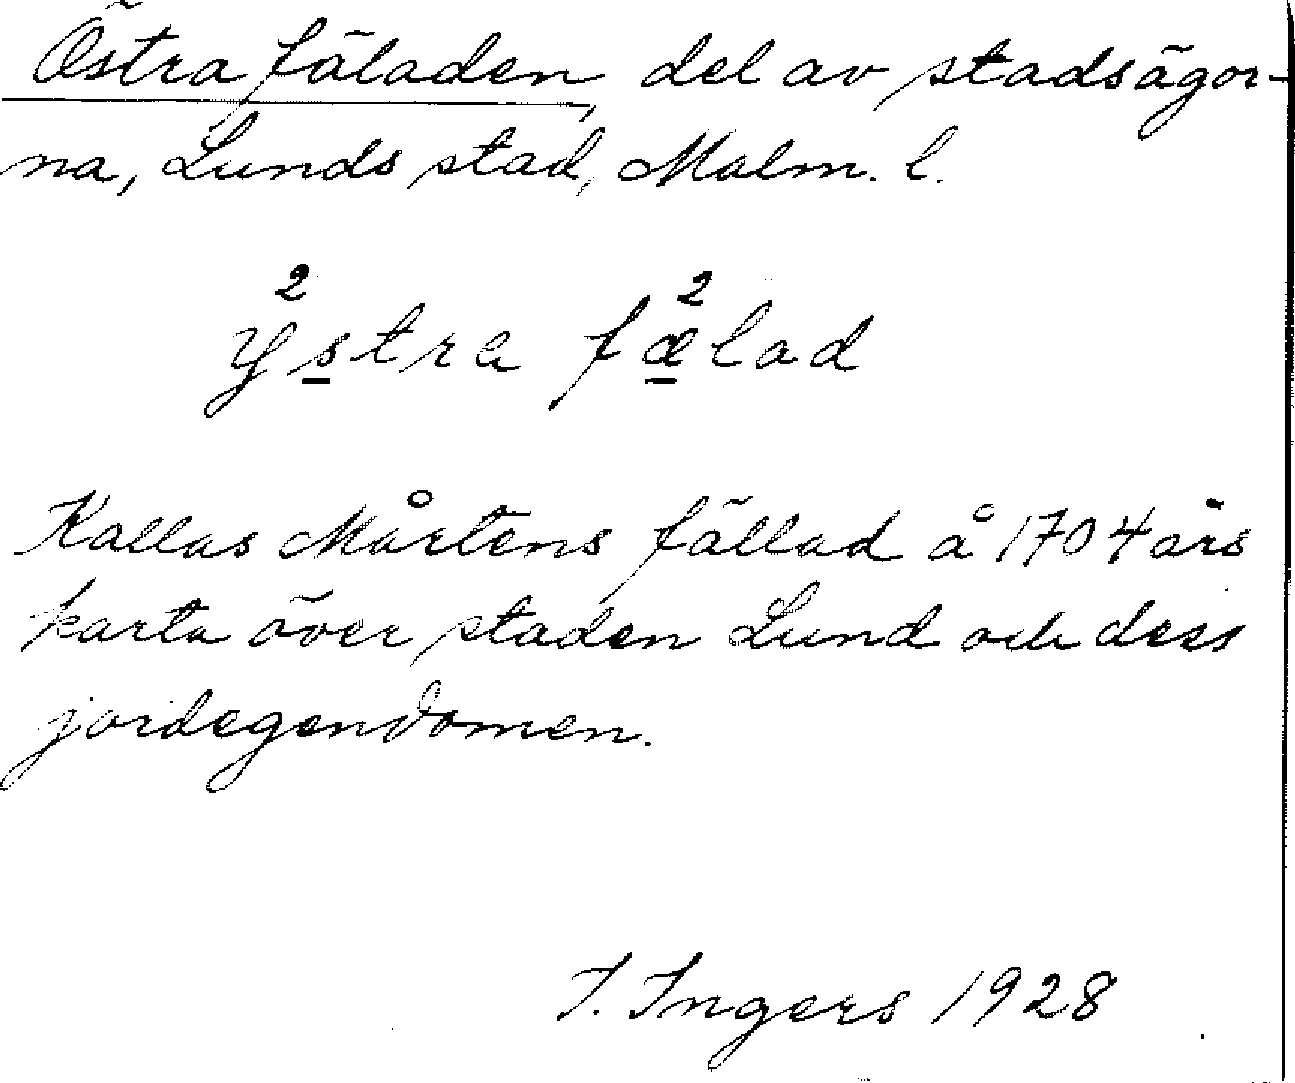 Östra fäladen, del av stadsägor-
na, Lunds stad, Malm. l.
ÿ²s̲tra fæ̲²lad
Kallas Mårtens fällad å 1704 års
karta över staden Lund och dess
jordegendomen.
I. Ingers 1928